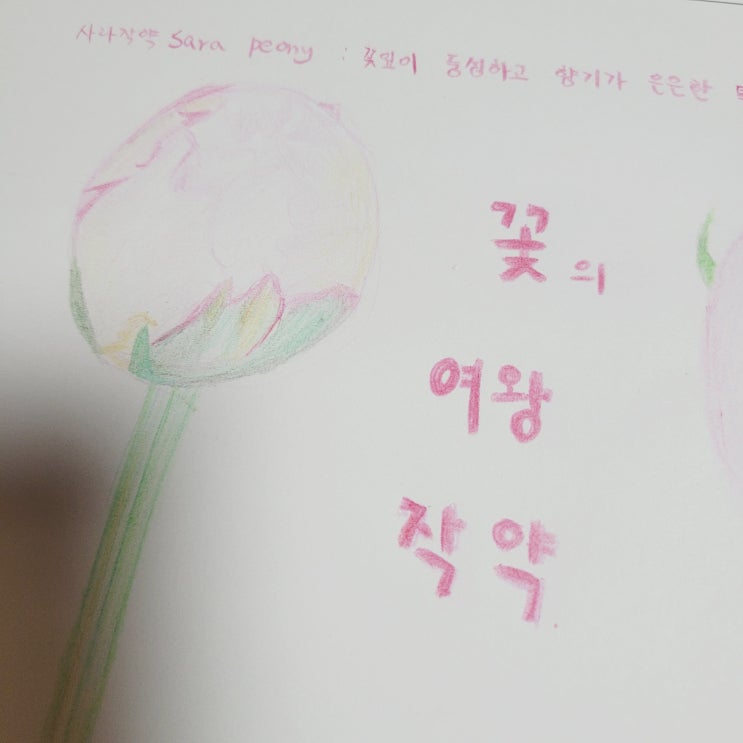 사라작약 Sara peony : 꽃잎이 풍성하고 향기가 은은한
꽃의
여왕
작약